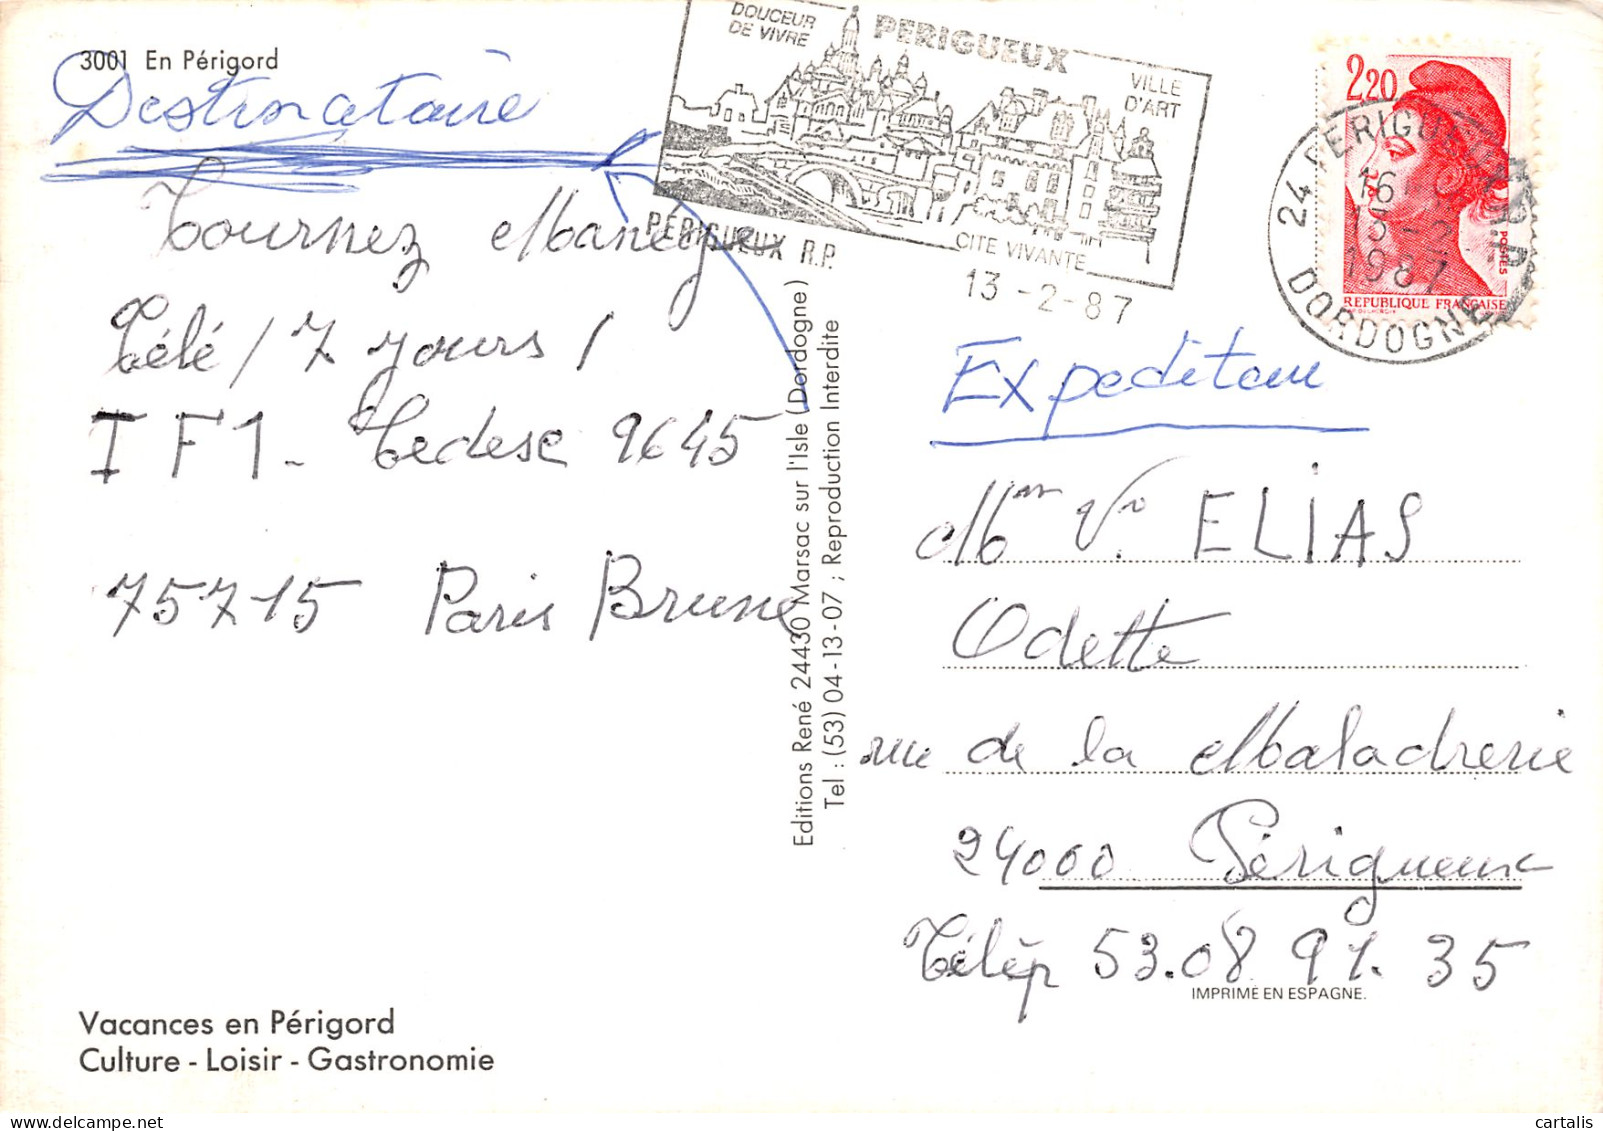 3001 En Périgord
Destinataire
Tournez Manege
Télé / 7 jours /
TF1 - Cedese 9645
75715 Paris Brune
Vacances en Périgord
Culture - Loisir - Gastronomie
Editions René 24430 Marsac sur l'Isle (Dordogne)
Tel : (53) 04-13-07 ; Reproduction Interdite
DOUCEUR
DE VIVRE
PERIGUEUX
VILLE
D'ART
CITE VIVANTE
PÉRIGUEUX R.P.
13-2-87
2,20
POSTES
REPUBLIQUE FRANÇAISE
24 PERIGUEUX R.P.
16
13-2
1987
DORDOGNE
Expediteur
Mm Ve ELIAS
Odette
rue de la Maladrerie
24000 Périgueux
Télép 53.08.91.35
IMPRIME EN ESPAGNE.
cartalis
delcampe.net